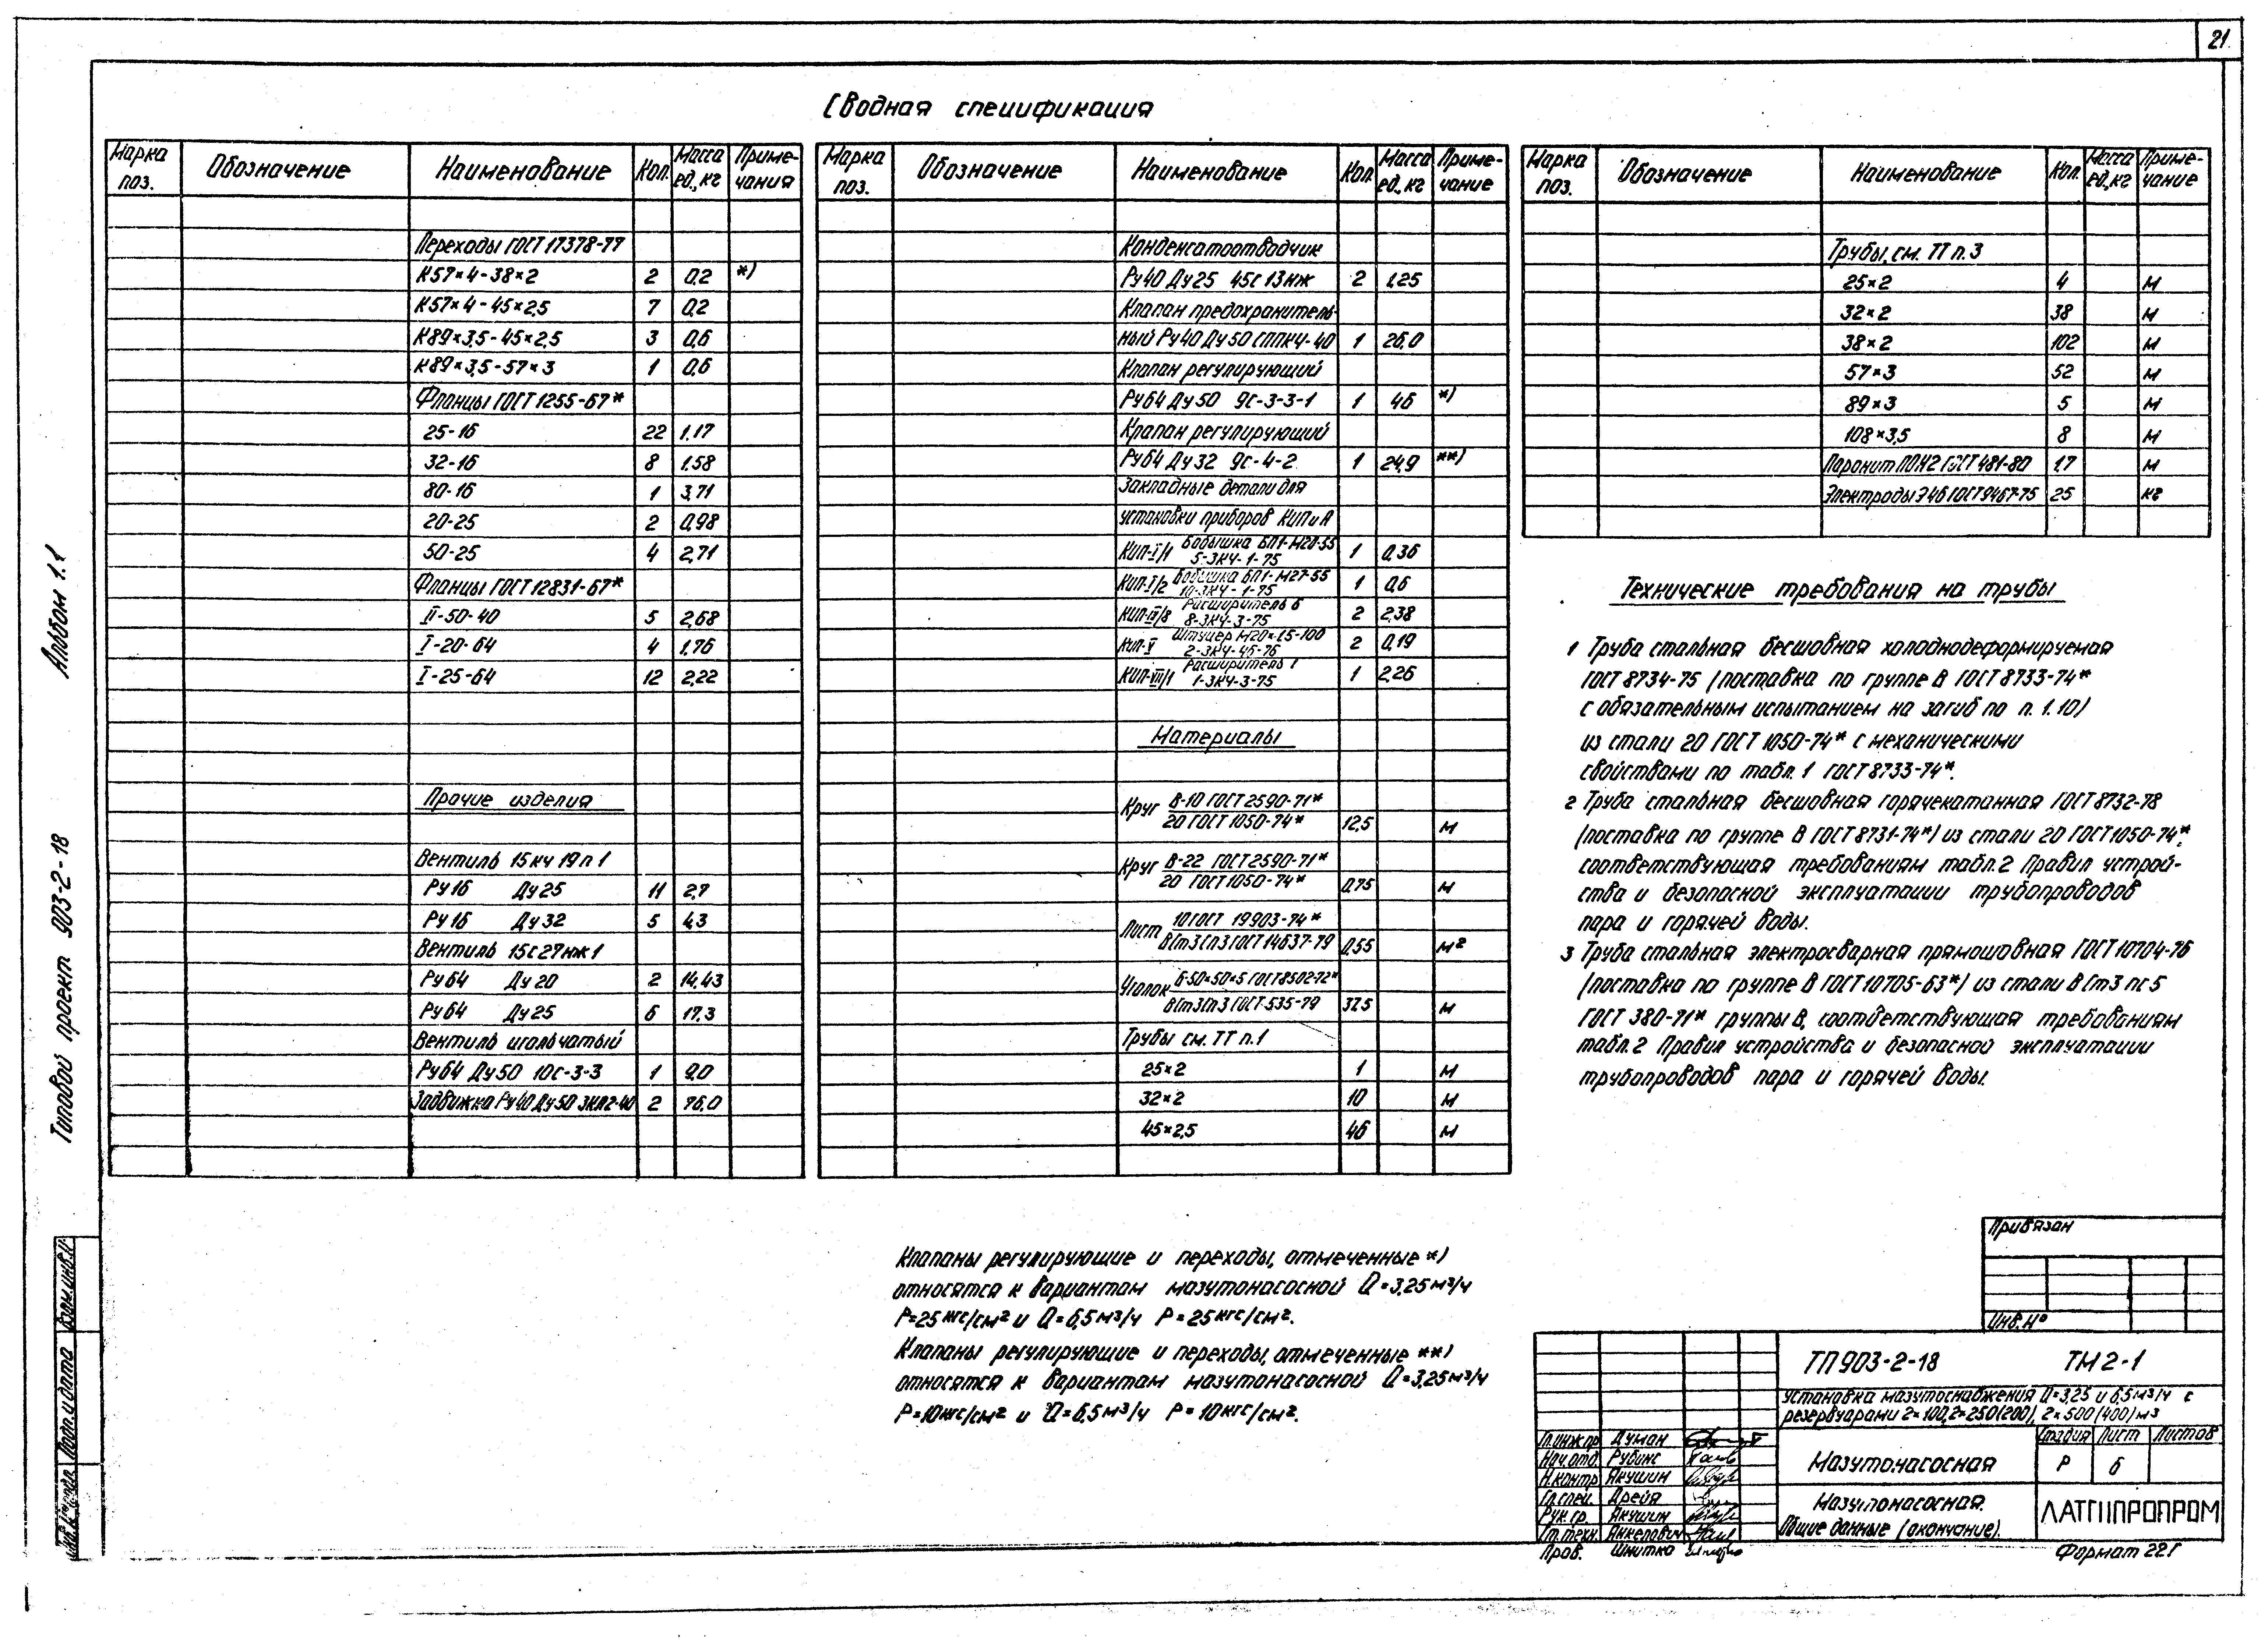 21
Сводная спецификация
Марка поз. Обозначение Наименование Кол. Масса ед., кг Приме-чания
Переходы ГОСТ 17378-77
К57×4-38×2 2 0,2 *)
К57×4-45×2,5 7 0,2
К89×3,5-45×2,5 3 0,6
К89×3,5-57×3 1 0,6
Фланцы ГОСТ 1255-67*
25-16 22 1.17
32-16 8 1.58
80-16 1 3,71
20-25 2 0,98
50-25 4 2,71
Фланцы ГОСТ 12831-67*
II-50-40 5 2,68
I-20-64 4 1.76
I-25-64 12 2,22
Прочие изделия
Вентиль 15кч 19п 1
Ру16 Ду25 11 2,7
Ру16 Ду32 5 4,3
Вентиль 15с27нж1
Ру64 Ду20 2 14,43
Ру64 Ду25 6 17,3
Вентиль игольчатый
Ру64 Ду50 10с-3-3 1 9,0
Задвижка Ру40 Ду50 ЗКЛ2-40 2 76,0
Марка поз. Обозначение Наименование Кол Масса ед., кг Приме-чание
Конденсатоотводчик
Ру40 Ду25 45с 13нж 2 1,25
Клапан предохранитель-
ный Ру40 Ду50 СППК4-40 1 26,0
Клапан регулирующий
Ру64 Ду50 9с-3-3-1 1 46 *)
Клапан регулирующий
Ру64 Ду32 9с-4-2 1 24,9 **)
Закладные детали для
установки приборов КИПиА
КИП-I/1 Бобышка БП1-М20-55
5-ЗК4-1-75 1 0,36
КИП-I/2 Бобышка БП1-М27-55
10-ЗК4-1-75 1 0,6
Расширитель 6
8-ЗК4-3-75 2 2,38
КИП-V Штуцер М20×1,5-100
2-ЗК4-46-76 2 0,19
КИП-VII/1 Расширитель 1
1-ЗК4-3-75 1 2,26
Материалы
Круг В-10 ГОСТ 2590-71*
20 ГОСТ 1050-74* 12,5 м
Круг В-22 ГОСТ 2590-71*
20 ГОСТ 1050-74* 0,75 м
Лист 10 ГОСТ 19903-74*
ВСт3сп3 ГОСТ 14637-79 0,55 м²
Уголок Б-50×50×5 ГОСТ 8502-72*
ВСт3сп3 ГОСТ-535-79 37,5 м
Трубы см. ТТ п.1
25×2 1 м
32×2 10 м
45×2,5 46 м
Марка поз. Обозначение Наименование Кол. Масса ед., кг Приме-чание
Трубы, см. ТТ п.3
25×2 4 м
32×2 38 м
38×2 102 м
57×3 52 м
89×3 5 м
108×3,5 8 м
Паронит ПОН2 ГОСТ 481-80 1,7 м
Электроды Э46 ГОСТ 9467-75 25 кг
Технические требования на трубы
1 Труба стальная бесшовная холоднодеформируемая
ГОСТ 8734-75 (поставка по группе В ГОСТ 8733-74*
с обязательным испытанием на загиб по п. 1.10)
из стали 20 ГОСТ 1050-74* с механическими
свойствами по табл. 1 ГОСТ 8733-74*.
2 Труба стальная бесшовная горячекатанная ГОСТ 8732-78
(поставка по группе В ГОСТ 8731-74*) из стали 20 ГОСТ 1050-74*,
соответствующая требованиям табл. 2 Правил устрой-
ства и безопасной эксплуатации трубопроводов
пара и горячей воды.
3 Труба стальная электросварная прямошовная ГОСТ 10704-76
(поставка по группе В ГОСТ 10705-63*) из стали ВСт3 пс5
ГОСТ 380-71* группы В, соответствующая требованиям
табл. 2 Правил устройства и безопасной эксплуатации
трубопроводов пара и горячей воды.
Клапаны регулирующие и переходы, отмеченные *)
относятся к вариантам мазутонасосной Q=3,25м³/ч
Р=25 кгс/см² и Q=6,5м³/ч Р=25кгс/см².
Клапаны регулирующие и переходы, отмеченные **)
относятся к вариантам мазутонасосной Q=3,25м³/ч
Р=10кгс/см² и Q=6,5м³/ч Р=10кгс/см².
Альбом 1.1
Типовой проект 903-2-18
Взам.инв.№
Подп. и дата
Привязан
Инв. №
ТП903-2-18 ТМ2-1
Установка мазутоснабжения Q=3,25 и 6,5м³/ч с
резервуарами 2×100, 2×250(200), 2×500(400)м³
Гл.инж.пр Думан
Нач.отд Рубинс
Н.контр Якушин
Гл.спец. Дрейя
Рук.гр. Якушин
Ст.техн. Анкелович
Пров. Шнитко
Мазутонасосная
Стадия Лист Листов
Р 6
Мазутонасосная.
Общие данные (окончание).
ЛАТГИПРОПРОМ
Формат 22Г